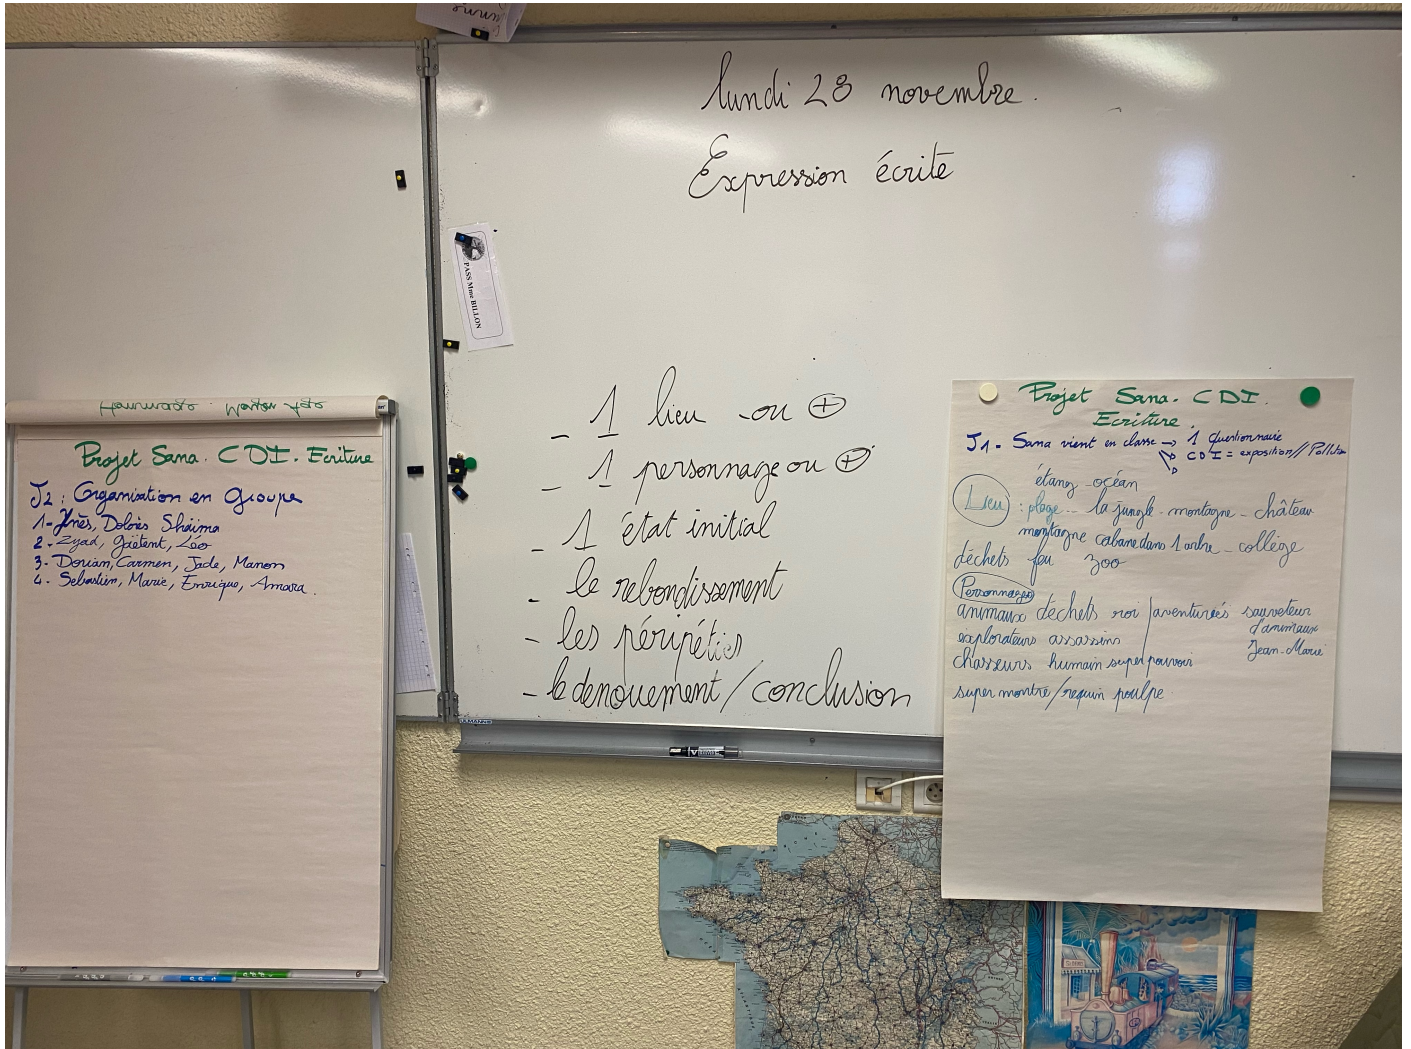 lundi 28 novembre.
Expression écrite
PASS Mme BILLON
- 1 lieu - ou +
- 1 personnage ou +
- 1 état initial
- le rebondissement
- les péripéties
- le denouement / conclusion
Projet Sana. CDI. Ecriture
J2 : Organisation en Groupe
1- Inès, Dolorès Shaïma
2- Zyad, gaëtent, Léo
3- Dorian, Carmen, Jade, Manon
4- Sebastien, Marie, Enrique, Amara.
Projet Sana. CDI.
Ecriture.
J1 - Sana vient en classe → 1 Questionnaire
CDI = exposition // Pollution
étang - océan
Lieu : plage - la jungle - montagne - château
montagne cabane dans 1 arbre - collège
déchets feu zoo
Personnages
animaux déchets roi / aventuriés sauveteur
d'animaux
explorateurs assassins
Jean-Marie
chasseurs humain super pouvoir
super montre / requin poulpe